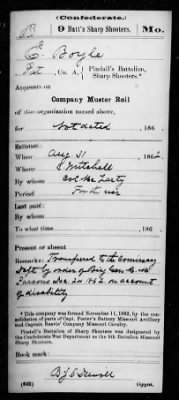 (Confederate.)
B 9 Batt'n Sharp Shooters. Mo.
E Boyle
Pvt, Co. A, Pindall's Battalion, Sharp Shooters.*
Appears on
Company Muster Roll
of the organization named above,
for Not dated, 186 .
Enlisted:
When Aug 31, 186
Where Mitchell
By whom Col
Period For the war
Last paid:
By whom
To what time , 186 .
Present or absent
Remarks: Transferred to the Commissary
Dept by order of Brig Gen M. M.
Parsons Dec 20 1862 on account
of disability
* This company was formed November 11, 1862, by the consolidation
of parts of Capt. Foster's Battery Missouri Artillery
and Captain Company Missouri Cavalry.
Pindall's Battalion of Sharp Shooters was designated by the
Confederate War Department as the 9th Battalion Missouri
Sharp Shooters.
Book mark:
(642) Copyist.